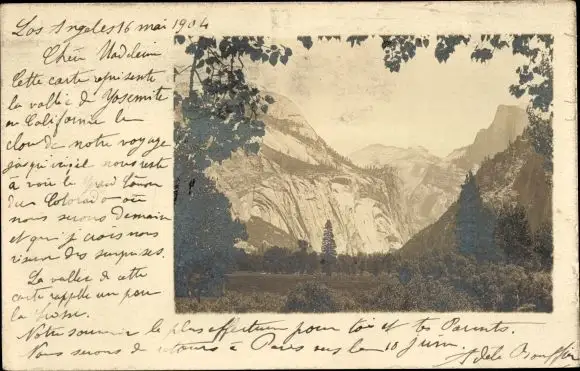 Los Angeles 16 mai 1904
Chère Madeleine
Cette carte représente
la vallée de Yosemite
en Californie le
clou de notre voyage
jusqu'ici il nous reste
à voir le Grand Cânon
du Colorado où
nous serons demain
et qui je crois nous
réserve des surprises.
La vallée de cette
carte rappelle un peu
la
Notre souvenir le plus affectueux pour toi et tes Parents.
Nous serons de retour à Paris vers le 10 Juin.
Adèle